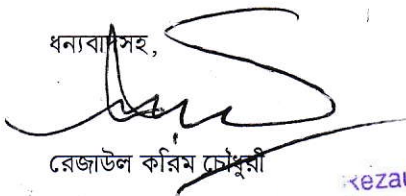 ধন্যবাদসহ,
রেজাউল করিম চৌধুরী
Rezau